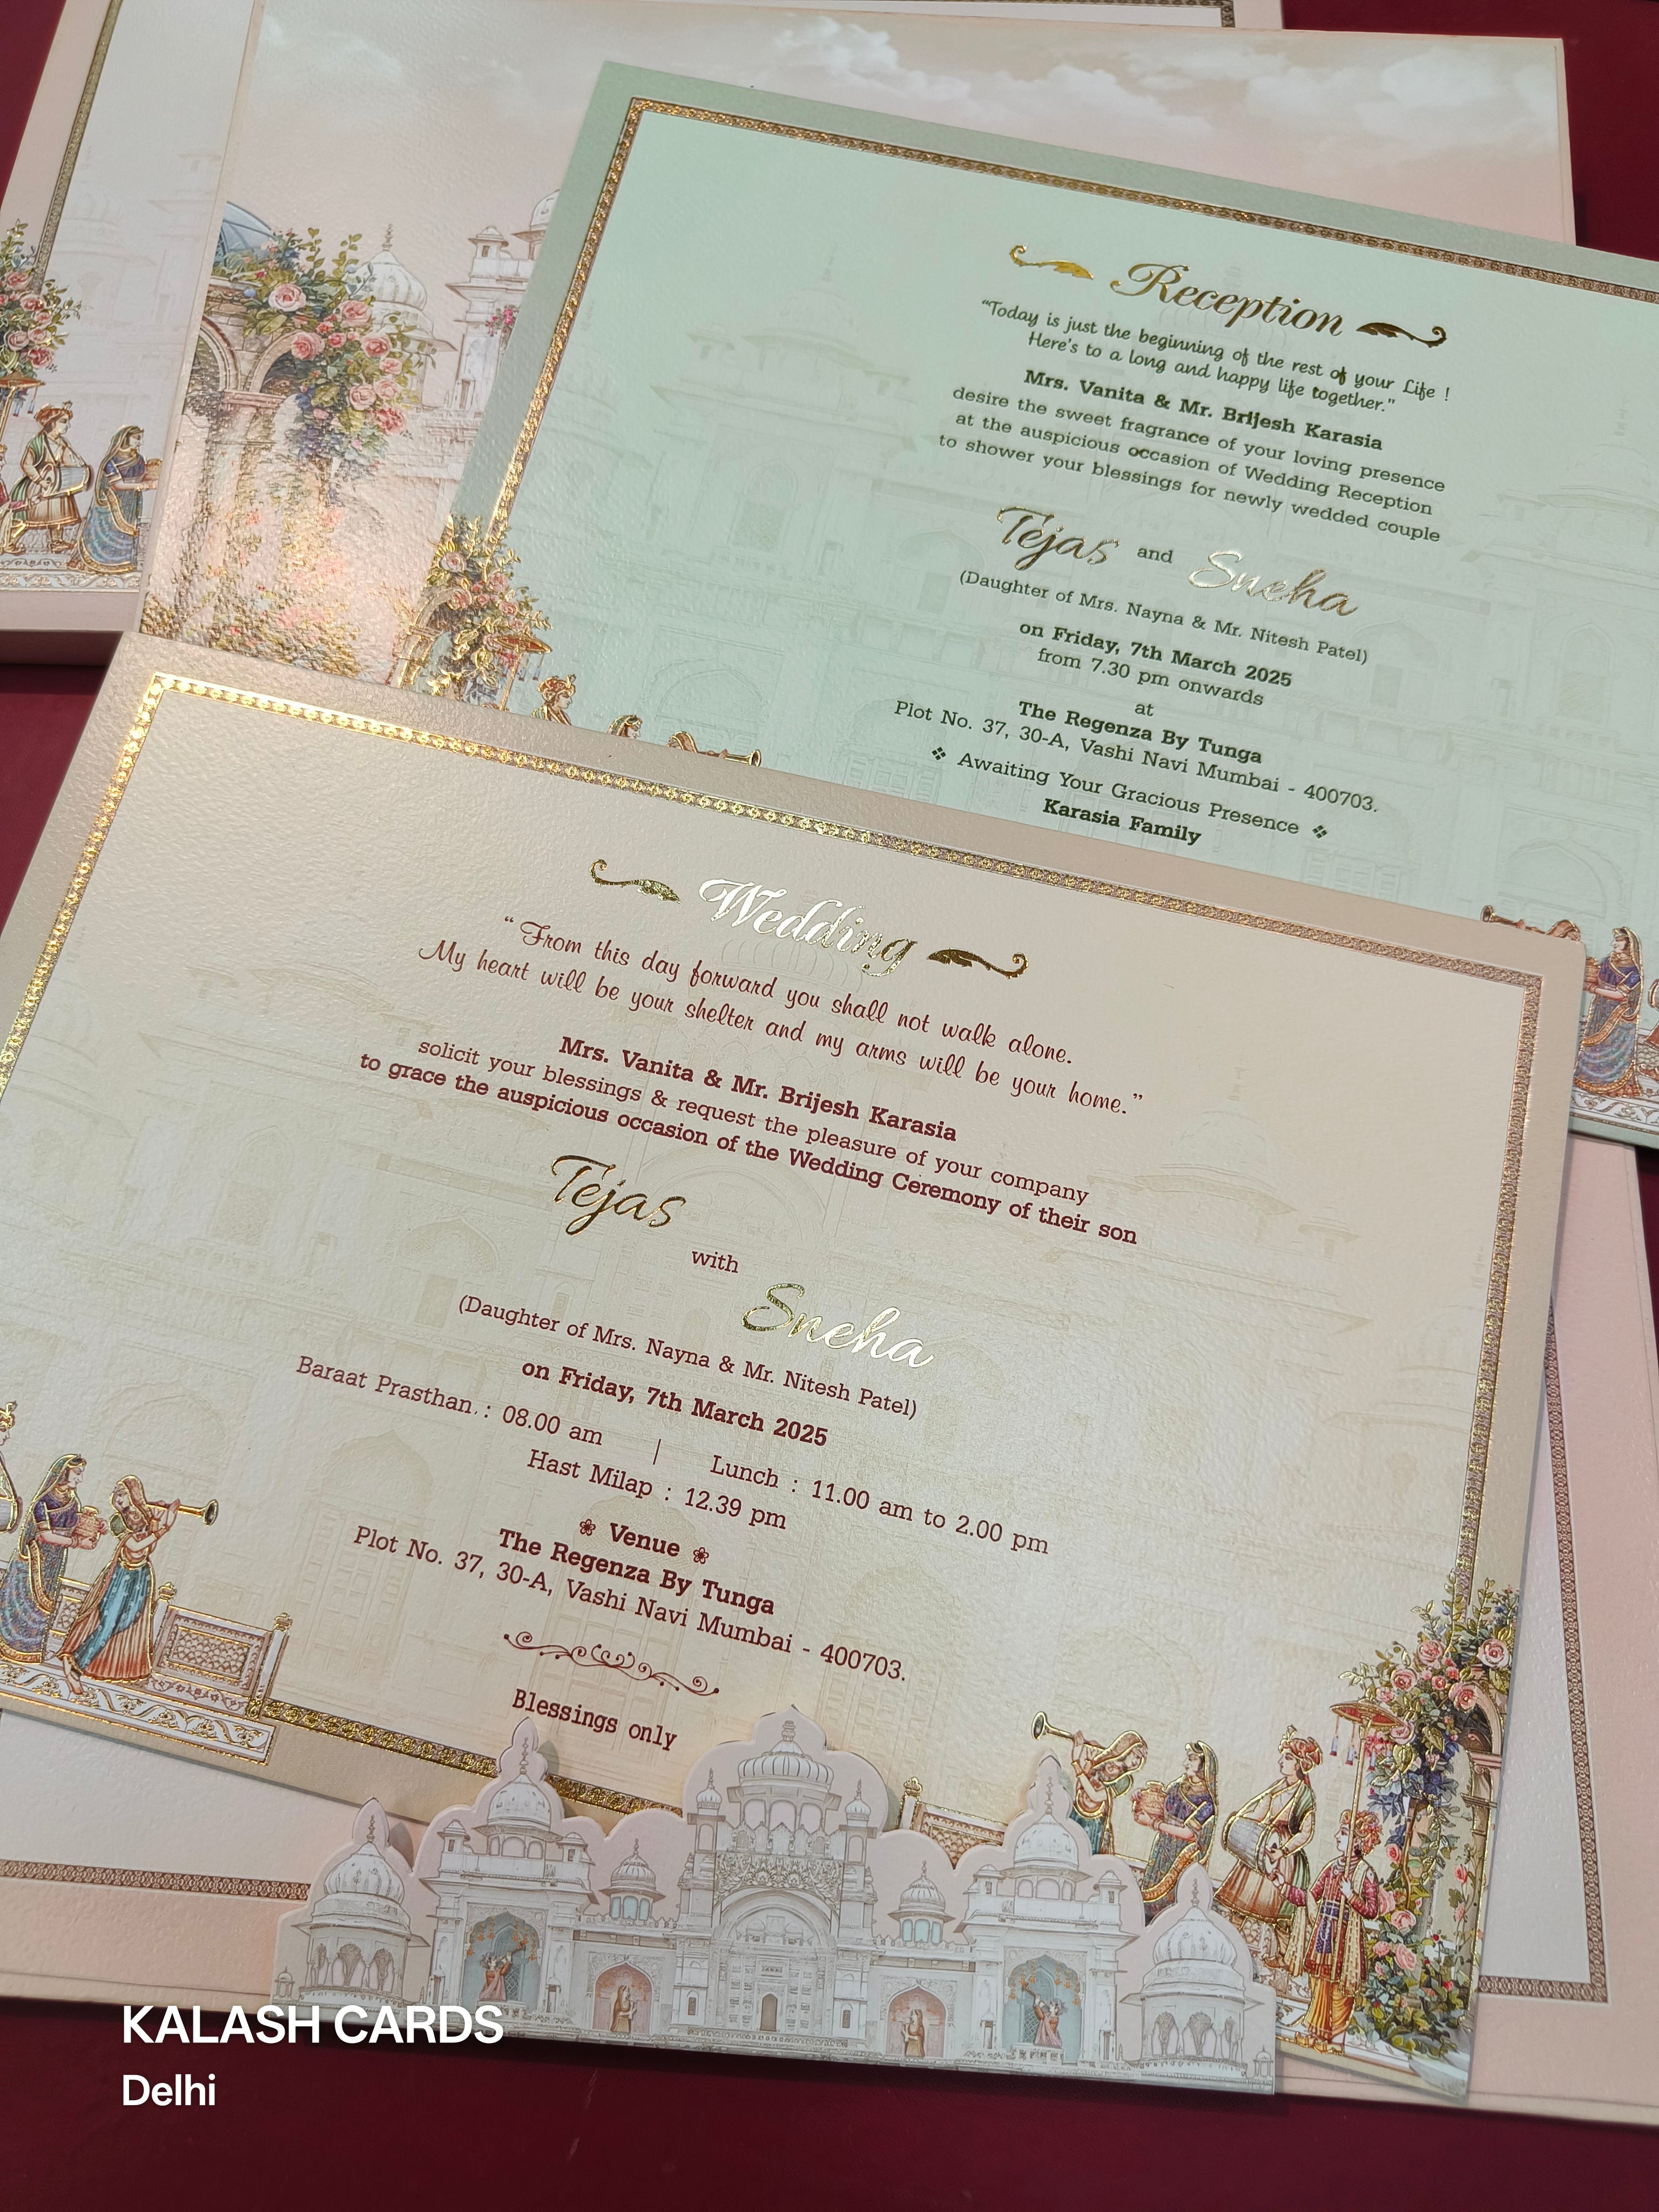 Reception
"Today is just the beginning of the rest of your Life !
Here's to a long and happy life together."
Mrs. Vanita & Mr. Brijesh Karasia
desire the sweet fragrance of your loving presence
at the auspicious occasion of Wedding Reception
to shower your blessings for newly wedded couple
Tejas and Sneha
(Daughter of Mrs. Nayna & Mr. Nitesh Patel)
on Friday, 7th March 2025
from 7.30 pm onwards
at
The Regenza By Tunga
Plot No. 37, 30-A, Vashi Navi Mumbai - 400703.
❖ Awaiting Your Gracious Presence ❖
Karasia Family
Wedding
"From this day forward you shall not walk alone.
My heart will be your shelter and my arms will be your home."
Mrs. Vanita & Mr. Brijesh Karasia
solicit your blessings & request the pleasure of your company
to grace the auspicious occasion of the Wedding Ceremony of their son
Tejas
with
Sneha
(Daughter of Mrs. Nayna & Mr. Nitesh Patel)
on Friday, 7th March 2025
Baraat Prasthan. : 08.00 am | Lunch : 11.00 am to 2.00 pm
Hast Milap : 12.39 pm
Venue
The Regenza By Tunga
Plot No. 37, 30-A, Vashi Navi Mumbai - 400703.
Blessings only
KALASH CARDS
Delhi